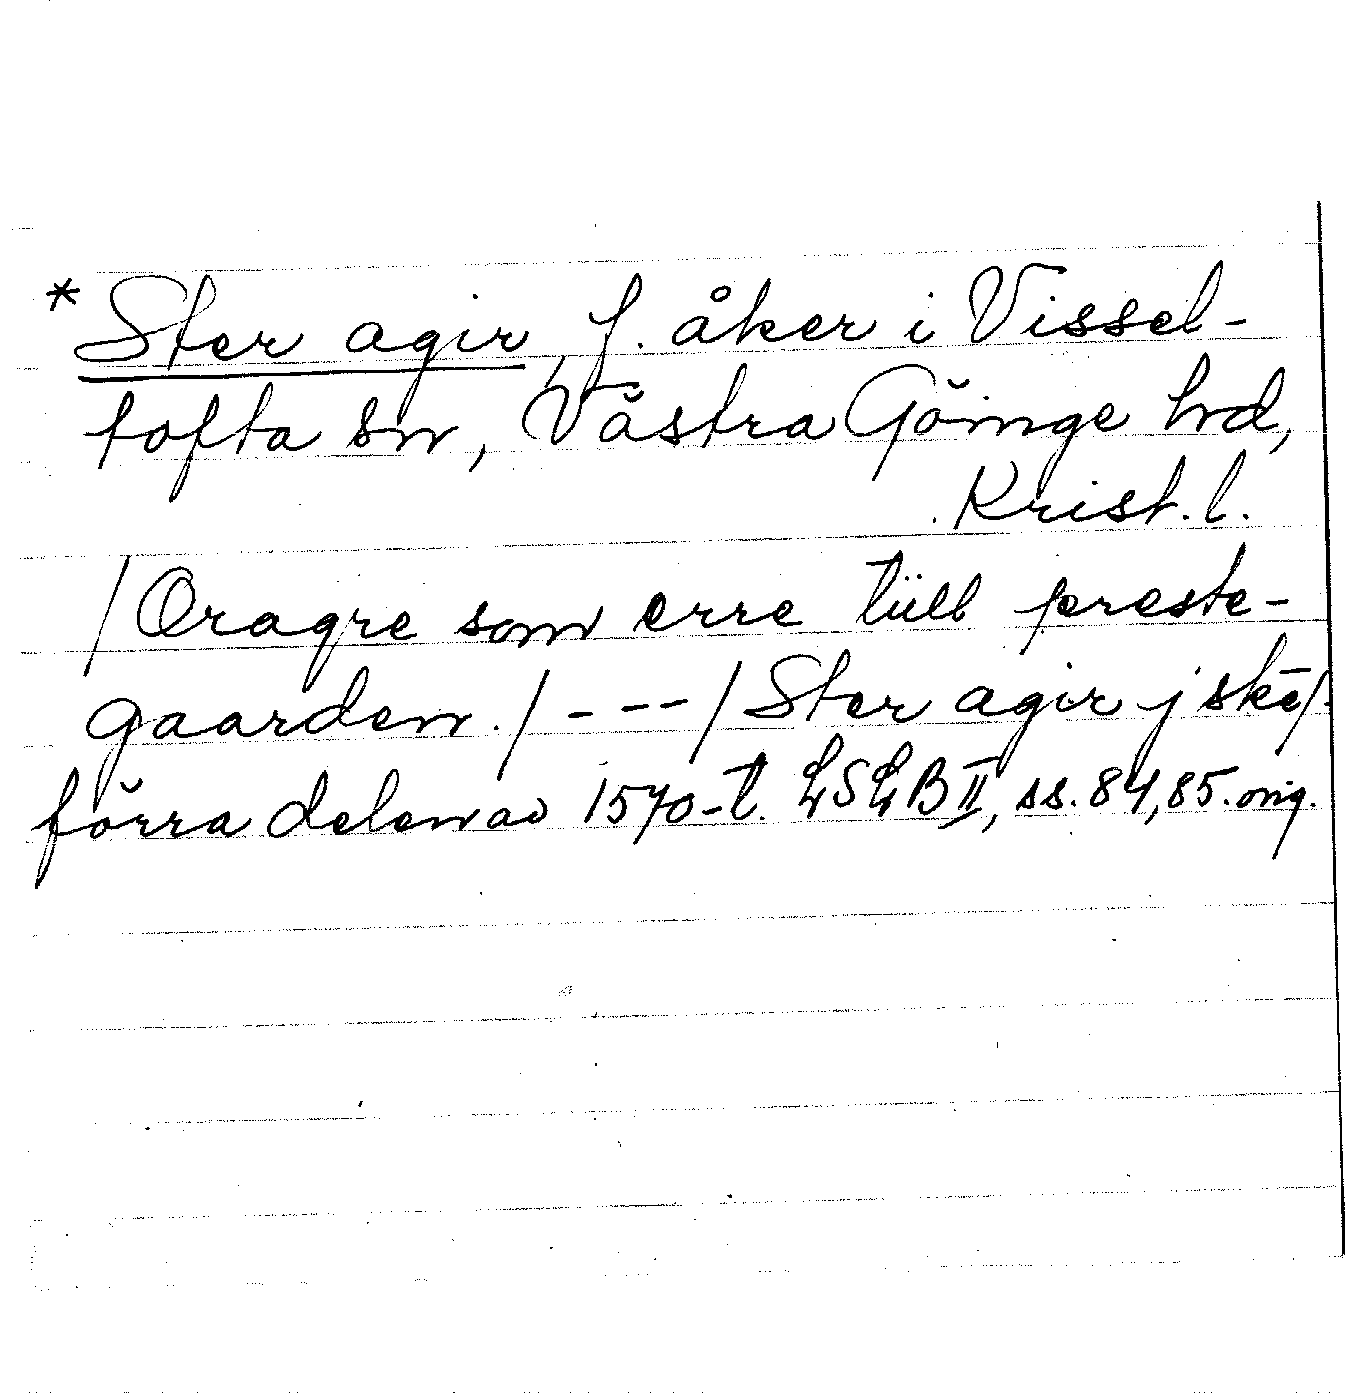 * Ster agir, f. åker i Vissel-
tofta sn, Västra Göinge hrd,
Krist. l.
/Oragre som erre tüll preste-
gaarden./---/Ster agir j skē/.
förra delen av 1570-t. LSLB II, ss. 84, 85. orig.